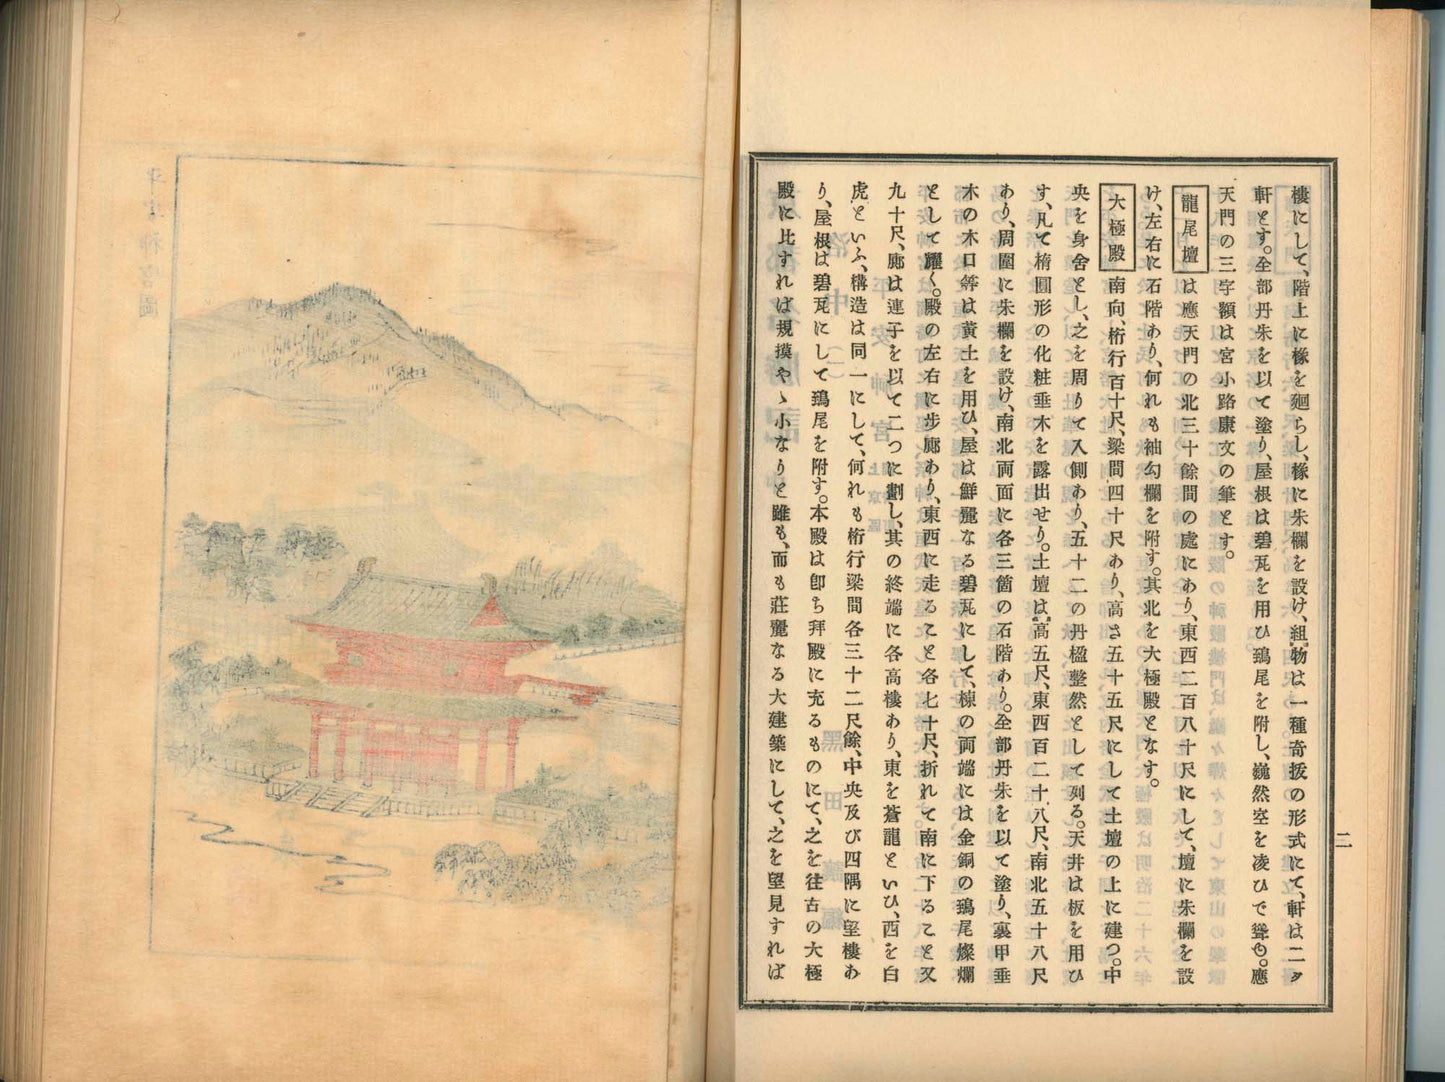 樓にして、階上に椽を廻らし、椽に朱欄を設け、組物は一種奇拔の形式にて、軒は二タ
軒とす。全部丹朱を以て塗り、屋根は碧瓦を用ひ鴟尾を附し、巍然空を凌ひで聳ゆ。應
天門の三字額は宮小路康文の筆とす。
龍尾壇 は應天門の北三十餘間の處にあり、東西二百八十尺にして、壇に朱欄を設
け、左右に石階あり、何れも袖勾欄を附す。其北を大極殿となす。
大極殿 南向、桁行百十尺、梁間四十尺あり、高さ五十五尺にして土壇の上に建つ。中
央を身舍とし、之を周りて入側あり、五十二の丹楹整然として列る。天井は板を用ひ
す、凡て楕圓形の化粧垂木を露出せり。土壇は高五尺、東西百二十八尺、南北五十八尺
あり、周圍に朱欄を設け、南北両面に各三箇の石階あり。全部丹朱を以て塗り、裏甲垂
木の木口等は黄土を用ひ、屋は鮮麗なる碧瓦にして、棟の両端には金銅の鴟尾燦爛
として耀く。殿の左右に步廊あり、東西に走ること各七十尺、折れて南に下ること又
九十尺、廊は連子を以て二つに劃し、其の終端に各高樓あり、東を蒼龍といひ、西を白
虎といふ、構造は同一にして、何れも桁行梁間各三十二尺餘、中央及び四隅に望樓あ
り、屋根は碧瓦にして鴟尾を附す。本殿は卽ち拜殿に充るものにて、之を往古の大極
殿に比すれば規摸やゝ小なりと雖も、而も莊麗なる大建築にして、之を望見すれば
二